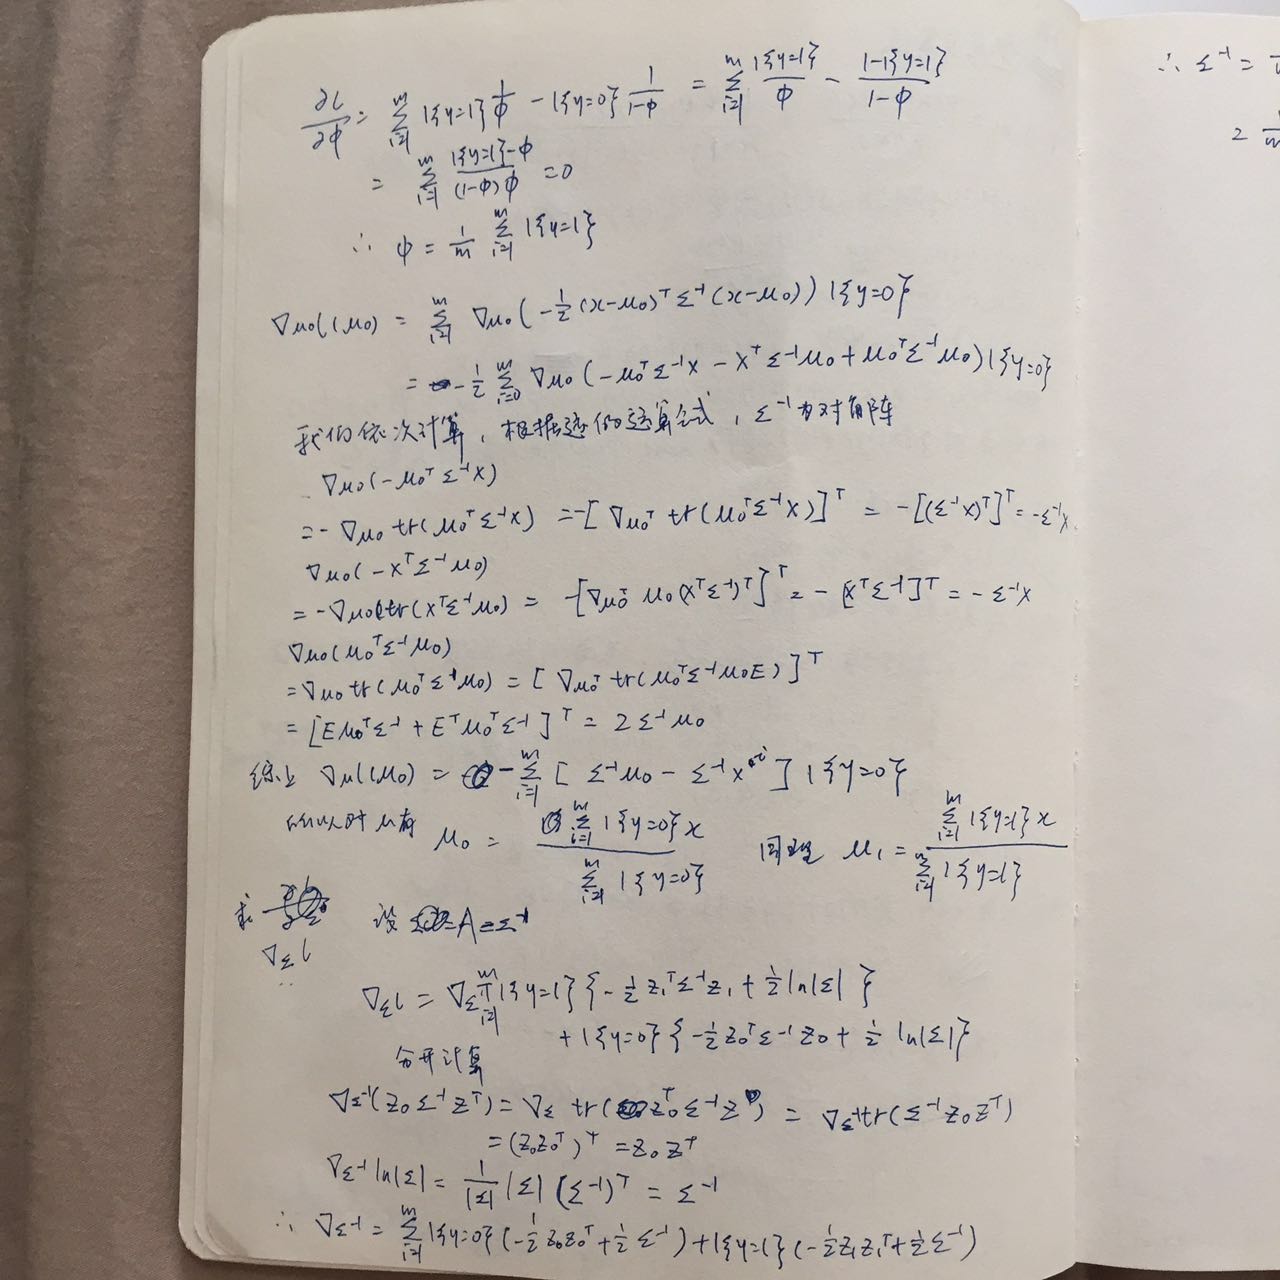 ∂l/∂φ = Σ_{i=1}^{m} 1{y=1} 1/φ - 1{y=0} 1/(1-φ) = Σ_{i=1}^{m} 1{y=1}/φ - (1-1{y=1})/(1-φ)
= Σ_{i=1}^{m} (1{y=1}-φ)/((1-φ)φ) = 0
∴ φ = 1/m Σ_{i=1}^{m} 1{y=1}
∇μ₀l(μ₀) = Σ_{i=1}^{m} ∇μ₀(-½(x-μ₀)ᵀΣ⁻¹(x-μ₀))1{y=0}
= -½ Σ_{i=0}^{m} ∇μ₀(-μ₀ᵀΣ⁻¹x - xᵀΣ⁻¹μ₀ + μ₀ᵀΣ⁻¹μ₀)1{y=0}
我们依次计算,根据迹的运算公式,Σ⁻¹为对角阵
∇μ₀(-μ₀ᵀΣ⁻¹x)
= -∇μ₀ tr(μ₀ᵀΣ⁻¹x) = -[∇μ₀ᵀ tr(μ₀ᵀΣ⁻¹x)]ᵀ = -[(Σ⁻¹x)ᵀ]ᵀ = -Σ⁻¹x
∇μ₀(-xᵀΣ⁻¹μ₀)
= -∇μ₀tr(xᵀΣ⁻¹μ₀) = -[∇μ₀ᵀ μ₀(xᵀΣ⁻¹)ᵀ]ᵀ = -[xᵀΣ⁻¹]ᵀ = -Σ⁻¹x
∇μ₀(μ₀ᵀΣ⁻¹μ₀)
= ∇μ₀ tr(μ₀ᵀΣ⁻¹μ₀) = [∇μ₀ᵀ tr(μ₀ᵀΣ⁻¹μ₀E)]ᵀ
= [Eμ₀ᵀΣ⁻¹ + Eᵀμ₀ᵀΣ⁻¹]ᵀ = 2Σ⁻¹μ₀
综上 ∇μl(μ₀) = -Σ_{i=1}^{m} [Σ⁻¹μ₀ - Σ⁻¹x⁽ⁱ⁾] 1{y=0}
μ₀ = Σ_{i=1}^{m} 1{y=0}x / Σ_{i=1}^{m} 1{y=0} 同理 μ₁ = Σ_{i=1}^{m} 1{y=1}x / Σ_{i=1}^{m} 1{y=1}
求 ∇_Σ l 设 A=Σ⁻¹
∇_Σ l = ∇_Σ Π_{i=1}^{m} 1{y=1}{-½z₁ᵀΣ⁻¹z₁ + ½ln|Σ|}
+ 1{y=0}{-½z₀ᵀΣ⁻¹z₀ + ½ ln|Σ|}
分开计算
∇Σ⁻¹(z₀Σ⁻¹zᵀ) = ∇_Σ tr(z₀ᵀΣ⁻¹z) = ∇Σ⁻¹tr(Σ⁻¹z₀zᵀ)
= (z₀z₀ᵀ)ᵀ = z₀zᵀ
∇Σ⁻¹ ln|Σ| = 1/|Σ| |Σ| (Σ⁻¹)ᵀ = Σ⁻¹
∴ ∇Σ⁻¹ = Σ_{i=1}^{m} 1{y=0}(-½z₀z₀ᵀ + ½Σ⁻¹) + 1{y=1}(-½z₁z₁ᵀ + ½Σ⁻¹)
∴ Σ⁻¹ =